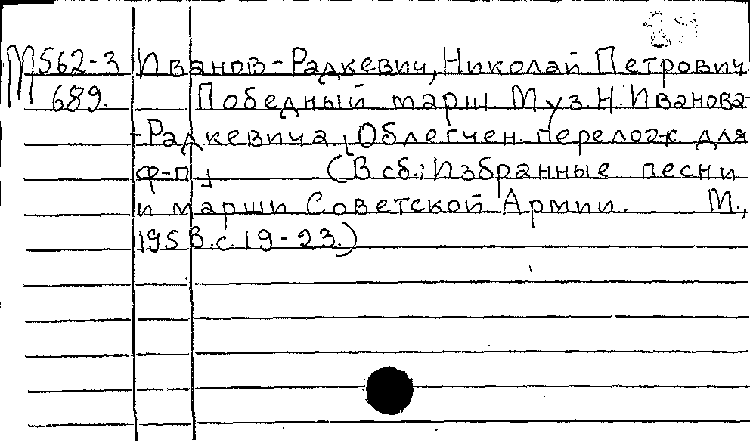 М 562-3 Иванов-Радкевич, Николай Петрович
689. Победный марш Муз. Н. Иванова
-Радкевича, Облегчен. перелож. для
ф-п, (В сб.: Избранные песни
и марши Советской Армии. М.,
1953. с. 19-23.)